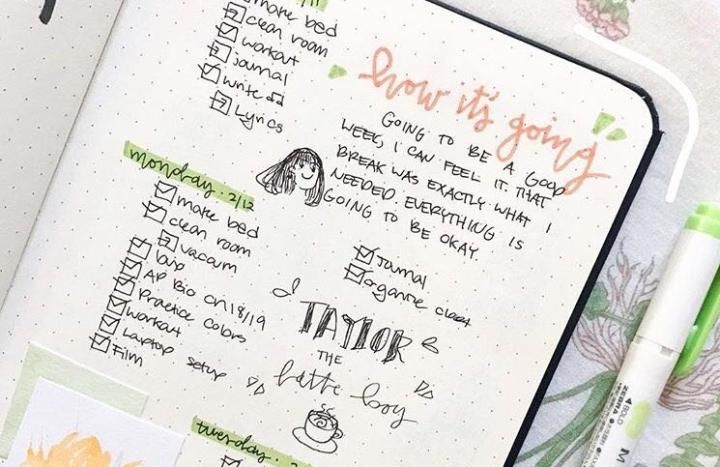 make bed
clean room
workout
journal
write
Lyrics
monday. 2/12
make bed
clean room
vacuum
AP Bio ch 18/19
Practice colors
workout
Laptop setup
Film
tuesday.
how it's going
GOING TO BE A GOOD
WEEK, I CAN FEEL IT. THAT
BREAK WAS EXACTLY WHAT I
NEEDED. EVERYTHING IS
GOING TO BE OKAY.
Journal
organize closet
TAYLOR
THE
latte boy
ZEBRA
BOLD